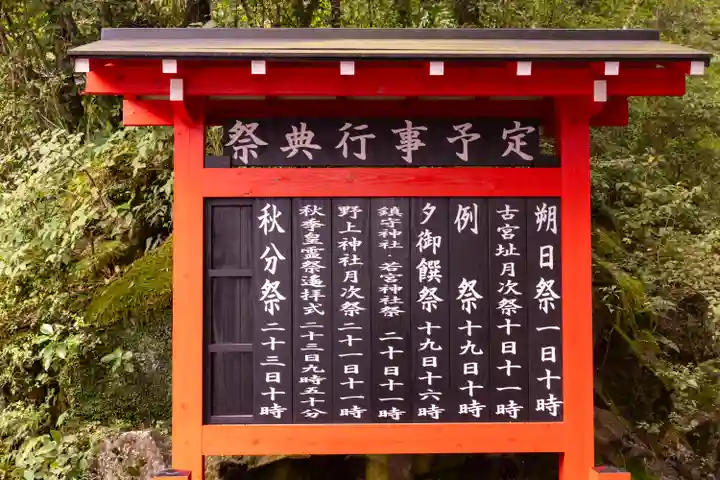 祭典行事予定
朔日祭 一日十時
古宮址月次祭 十日十一時
例祭 十九日十時
夕御饌祭 十九日十六時
鎮守神社・若宮神社祭 二十日十一時
野上神社月次祭 二十一日十一時
秋季皇霊祭遙拝式 二十三日九時五十分
秋分祭 二十三日十時